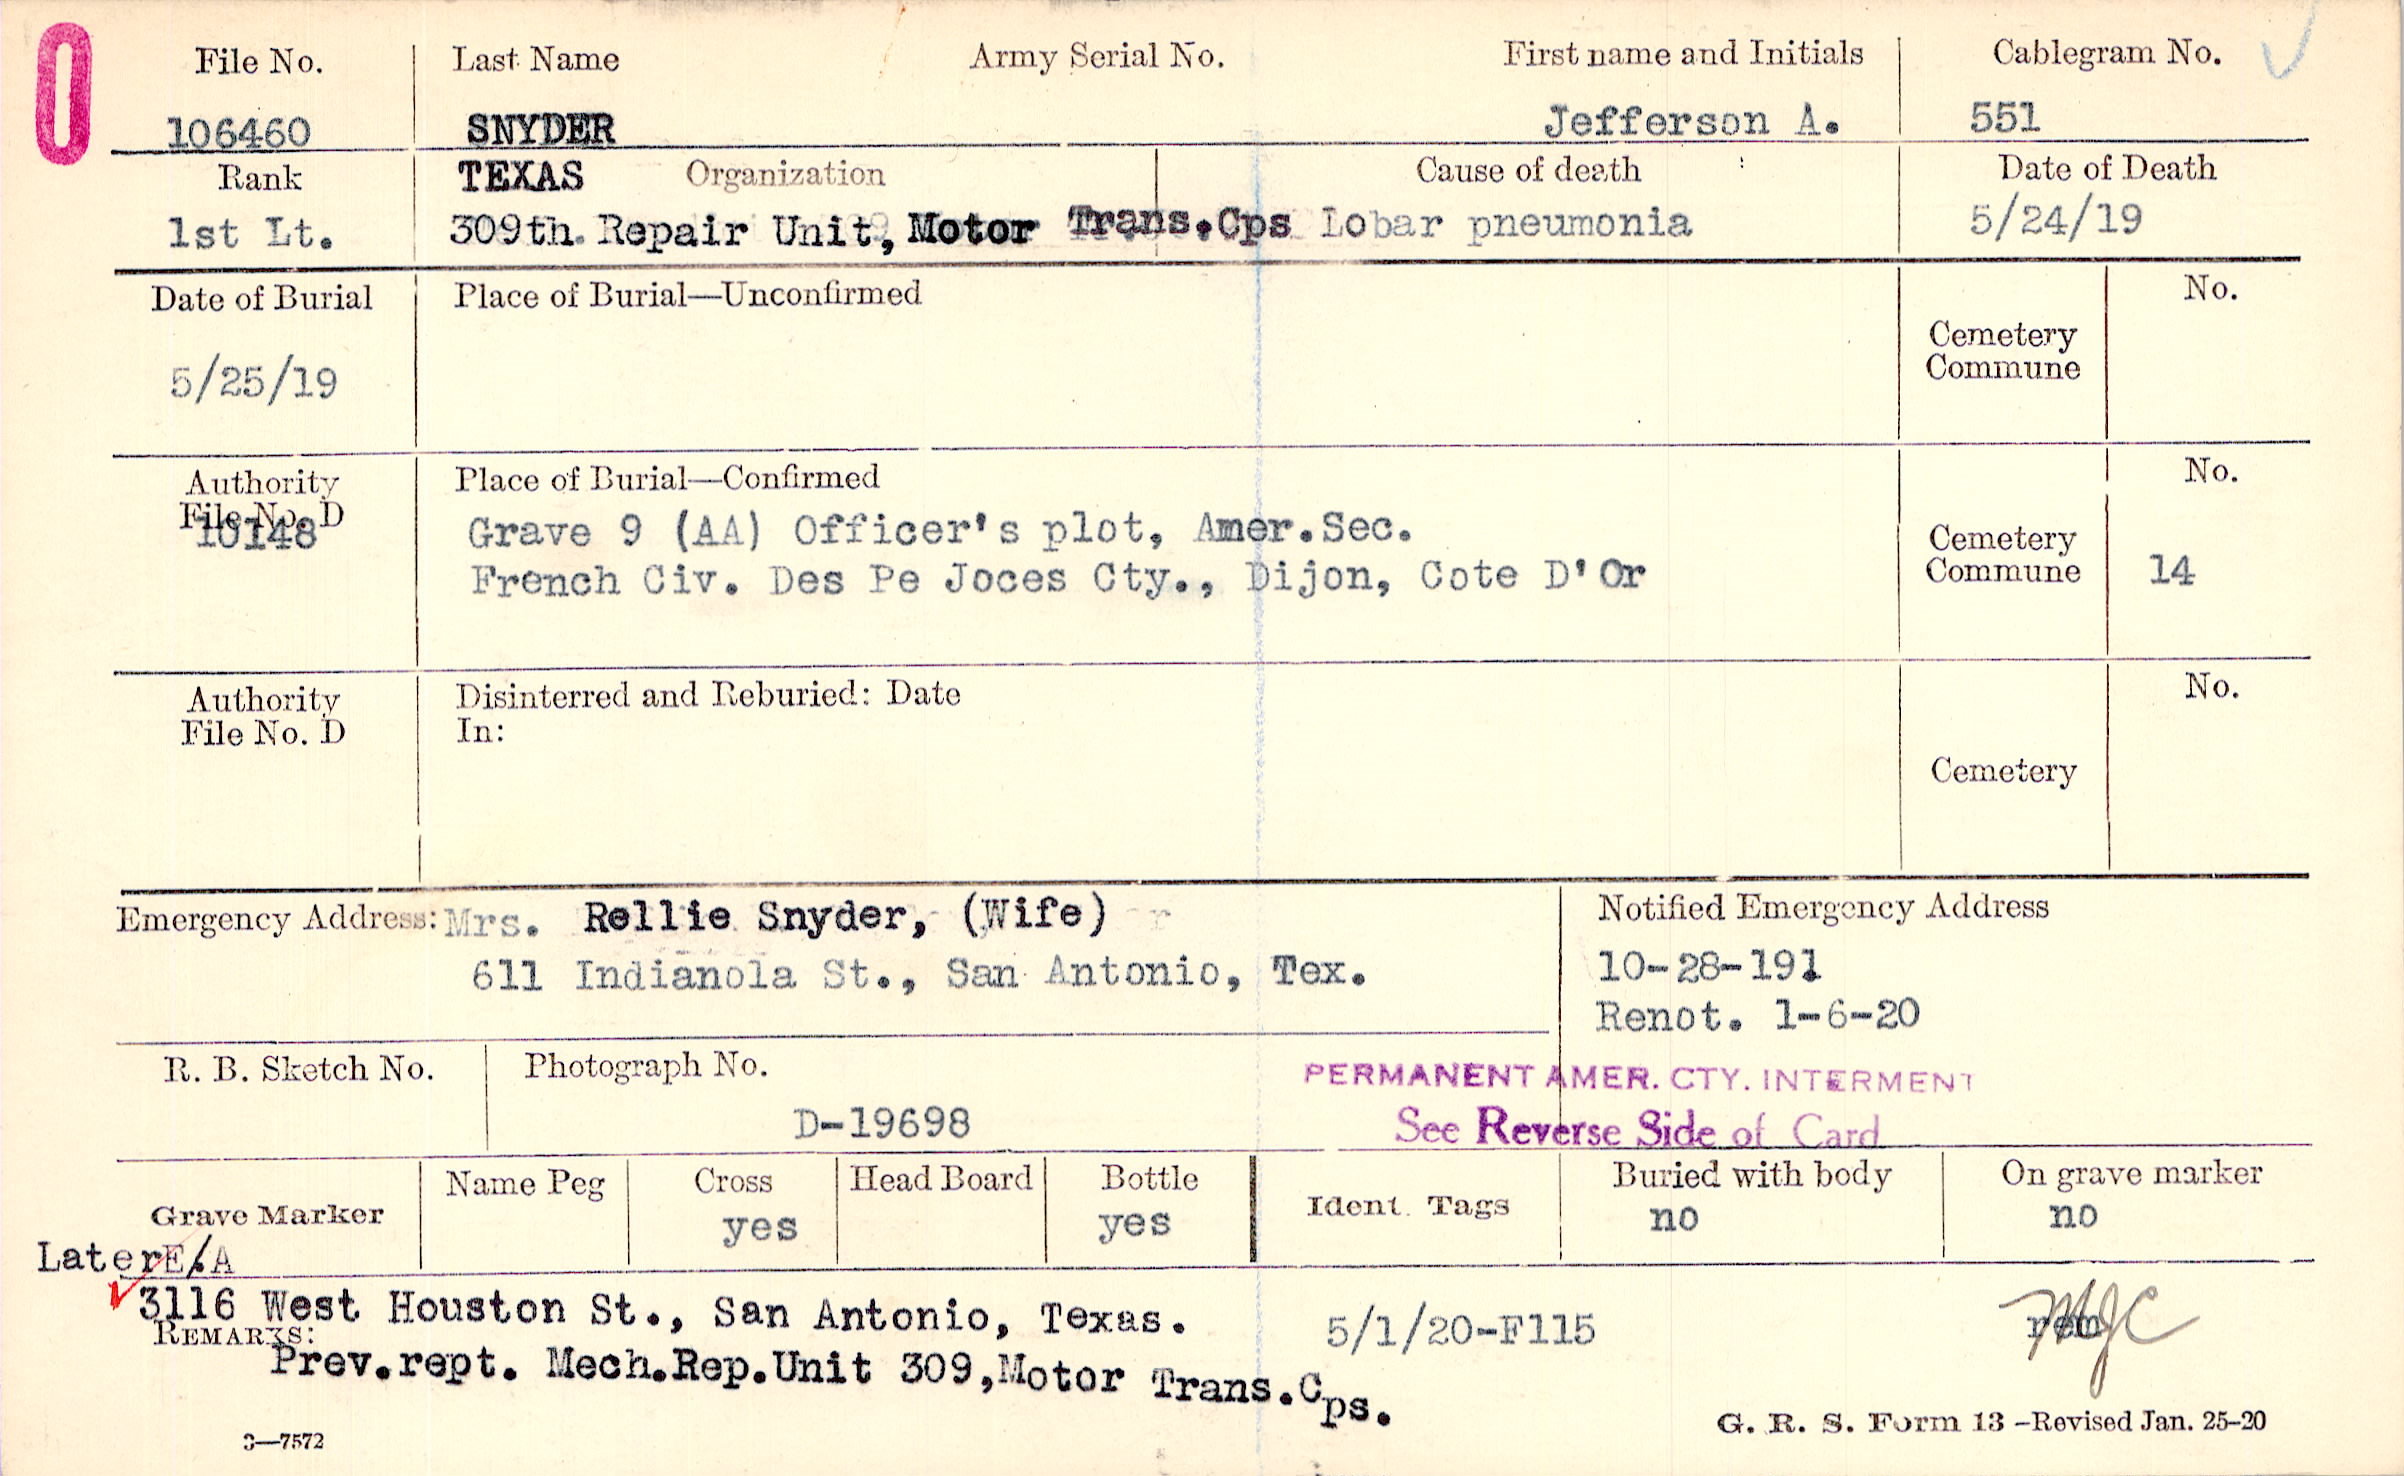 0
File No.
Last Name
Army Serial No.
First name and Initials
Cablegram No.
106460
SNYDER
Jefferson A.
551
Rank
TEXAS
Organization
Cause of death
Date of Death
1st Lt.
309th. Repair Unit, Motor Trans.Cps
Lobar pneumonia
5/24/19
Date of Burial
Place of Burial—Unconfirmed
Cemetery
Commune
No.
5/25/19
Authority
File No. D
10148
Place of Burial—Confirmed
Grave 9 (AA) Officer's plot, Amer.Sec.
French Civ. Des Pe Joces Cty., Dijon, Cote D'Or
Cemetery
Commune
No.
14
Authority
File No. D
Disinterred and Reburied: Date
In:
Cemetery
No.
Emergency Address: Mrs. Rellie Snyder, (Wife)
611 Indianola St., San Antonio, Tex.
Notified Emergency Address
10-28-191
Renot. 1-6-20
R. B. Sketch No.
Photograph No.
D-19698
PERMANENT AMER. CTY. INTERMENT
See Reverse Side of Card
Grave Marker
Name Peg
Cross
yes
Head Board
Bottle
yes
Ident. Tags
Buried with body
no
On grave marker
no
LaterE/A
3116 West Houston St., San Antonio, Texas.
5/1/20-F115
REMARKS:
Prev.rept. Mech.Rep.Unit 309,Motor Trans.Cps.
3—7572
G. R. S. Form 13 –Revised Jan. 25–20